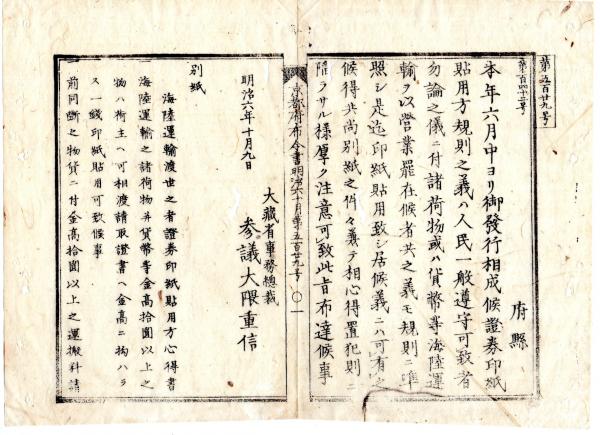 第五百廿九号
第百四十三号
府縣
本年六月中ヨリ御發行相成候證券印紙
貼用方規則之義ハ人民一般遵守可致者
勿論之儀ニ付諸荷物或ハ貨幣等海陸運
輸ヲ以營業罷在候者共之義モ規則ニ準
照シ是迄印紙貼用致シ居候義ニハ可有之
候得共尚別紙之件々義ヲ相心得置犯則ニ
陥ラサル様厚ク注意可致此旨布達候事
大藏省事務総裁
参議大隈重信
明治六年十月九日
京都府布令書明治六十月第五百廿九号 〇一
別紙
海陸運輸渡世之者證券印紙貼用方心得書
一海陸運輸之諸荷物并貨幣等金高拾圓以上之
物ハ荷主ヘ可相渡請取證書ヘ金高ニ拘ハラ
ス一錢印紙貼用可致候事
一前同断之物貨ニ付金高拾圓以上之運搬科請